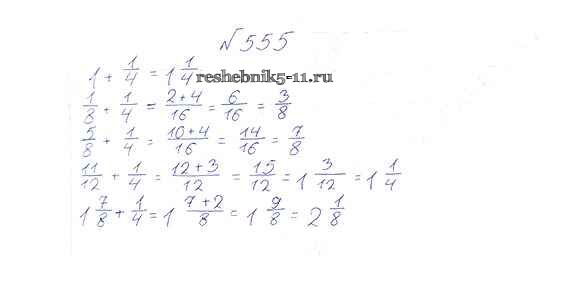 №555
1 + 1/4 = 1 1/4
reshebnik5-11.ru
1/8 + 1/4 = (2+4)/16 = 6/16 = 3/8
5/8 + 1/4 = (10+4)/16 = 14/16 = 7/8
11/12 + 1/4 = (12+3)/12 = 15/12 = 1 3/12 = 1 1/4
1 7/8 + 1/4 = 1 (7+2)/8 = 1 9/8 = 2 1/8